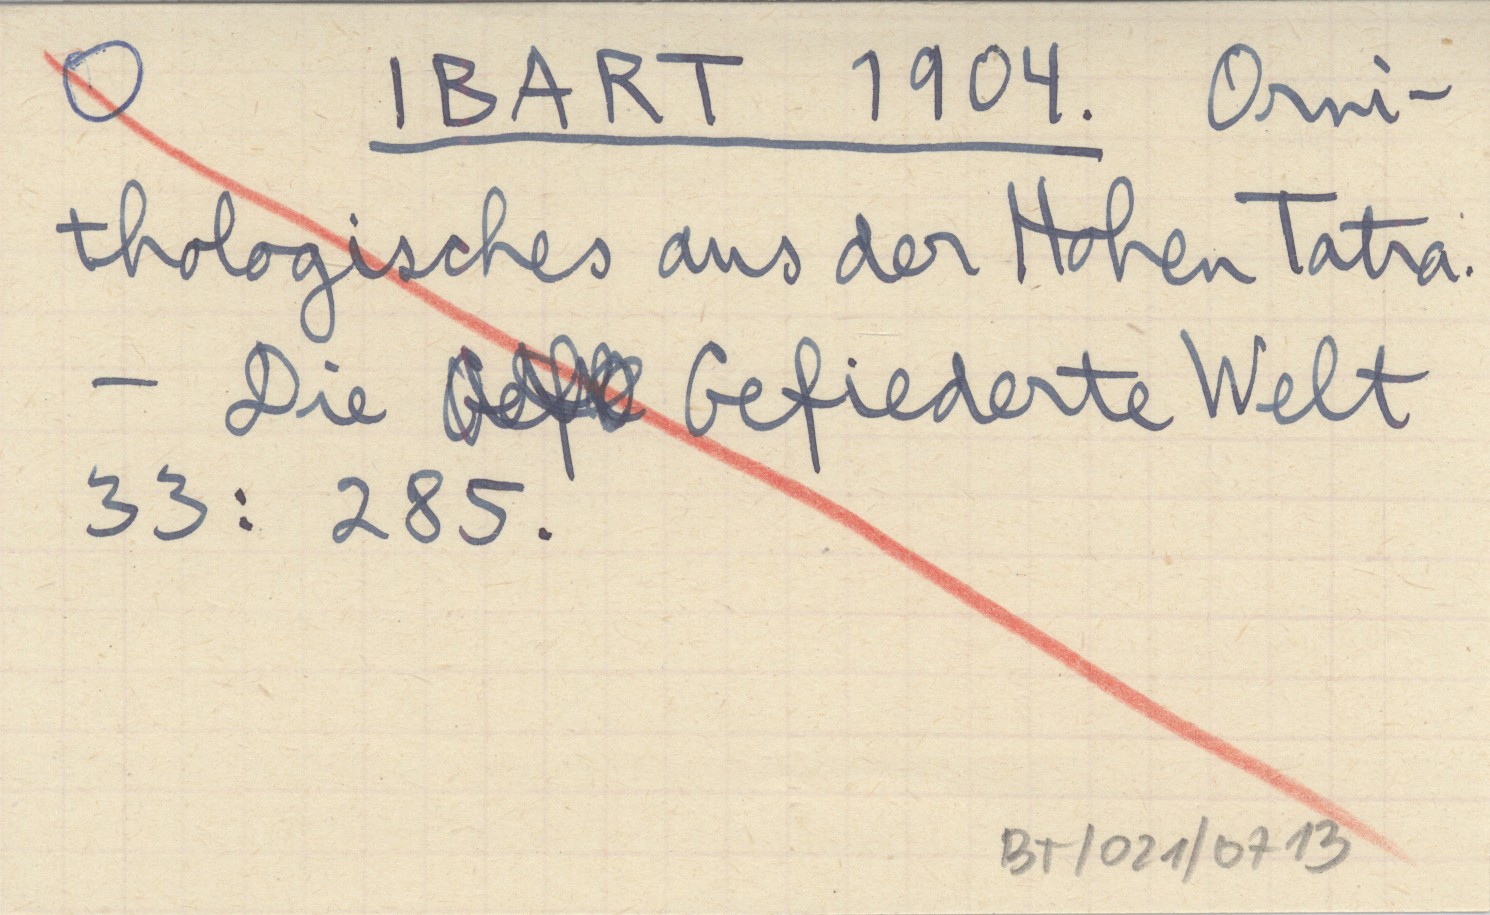 O IBART 1904. Orni-
thologisches aus der Hohen Tatra.
– Die Gefiederte Welt
33: 285.
BT/021/0713